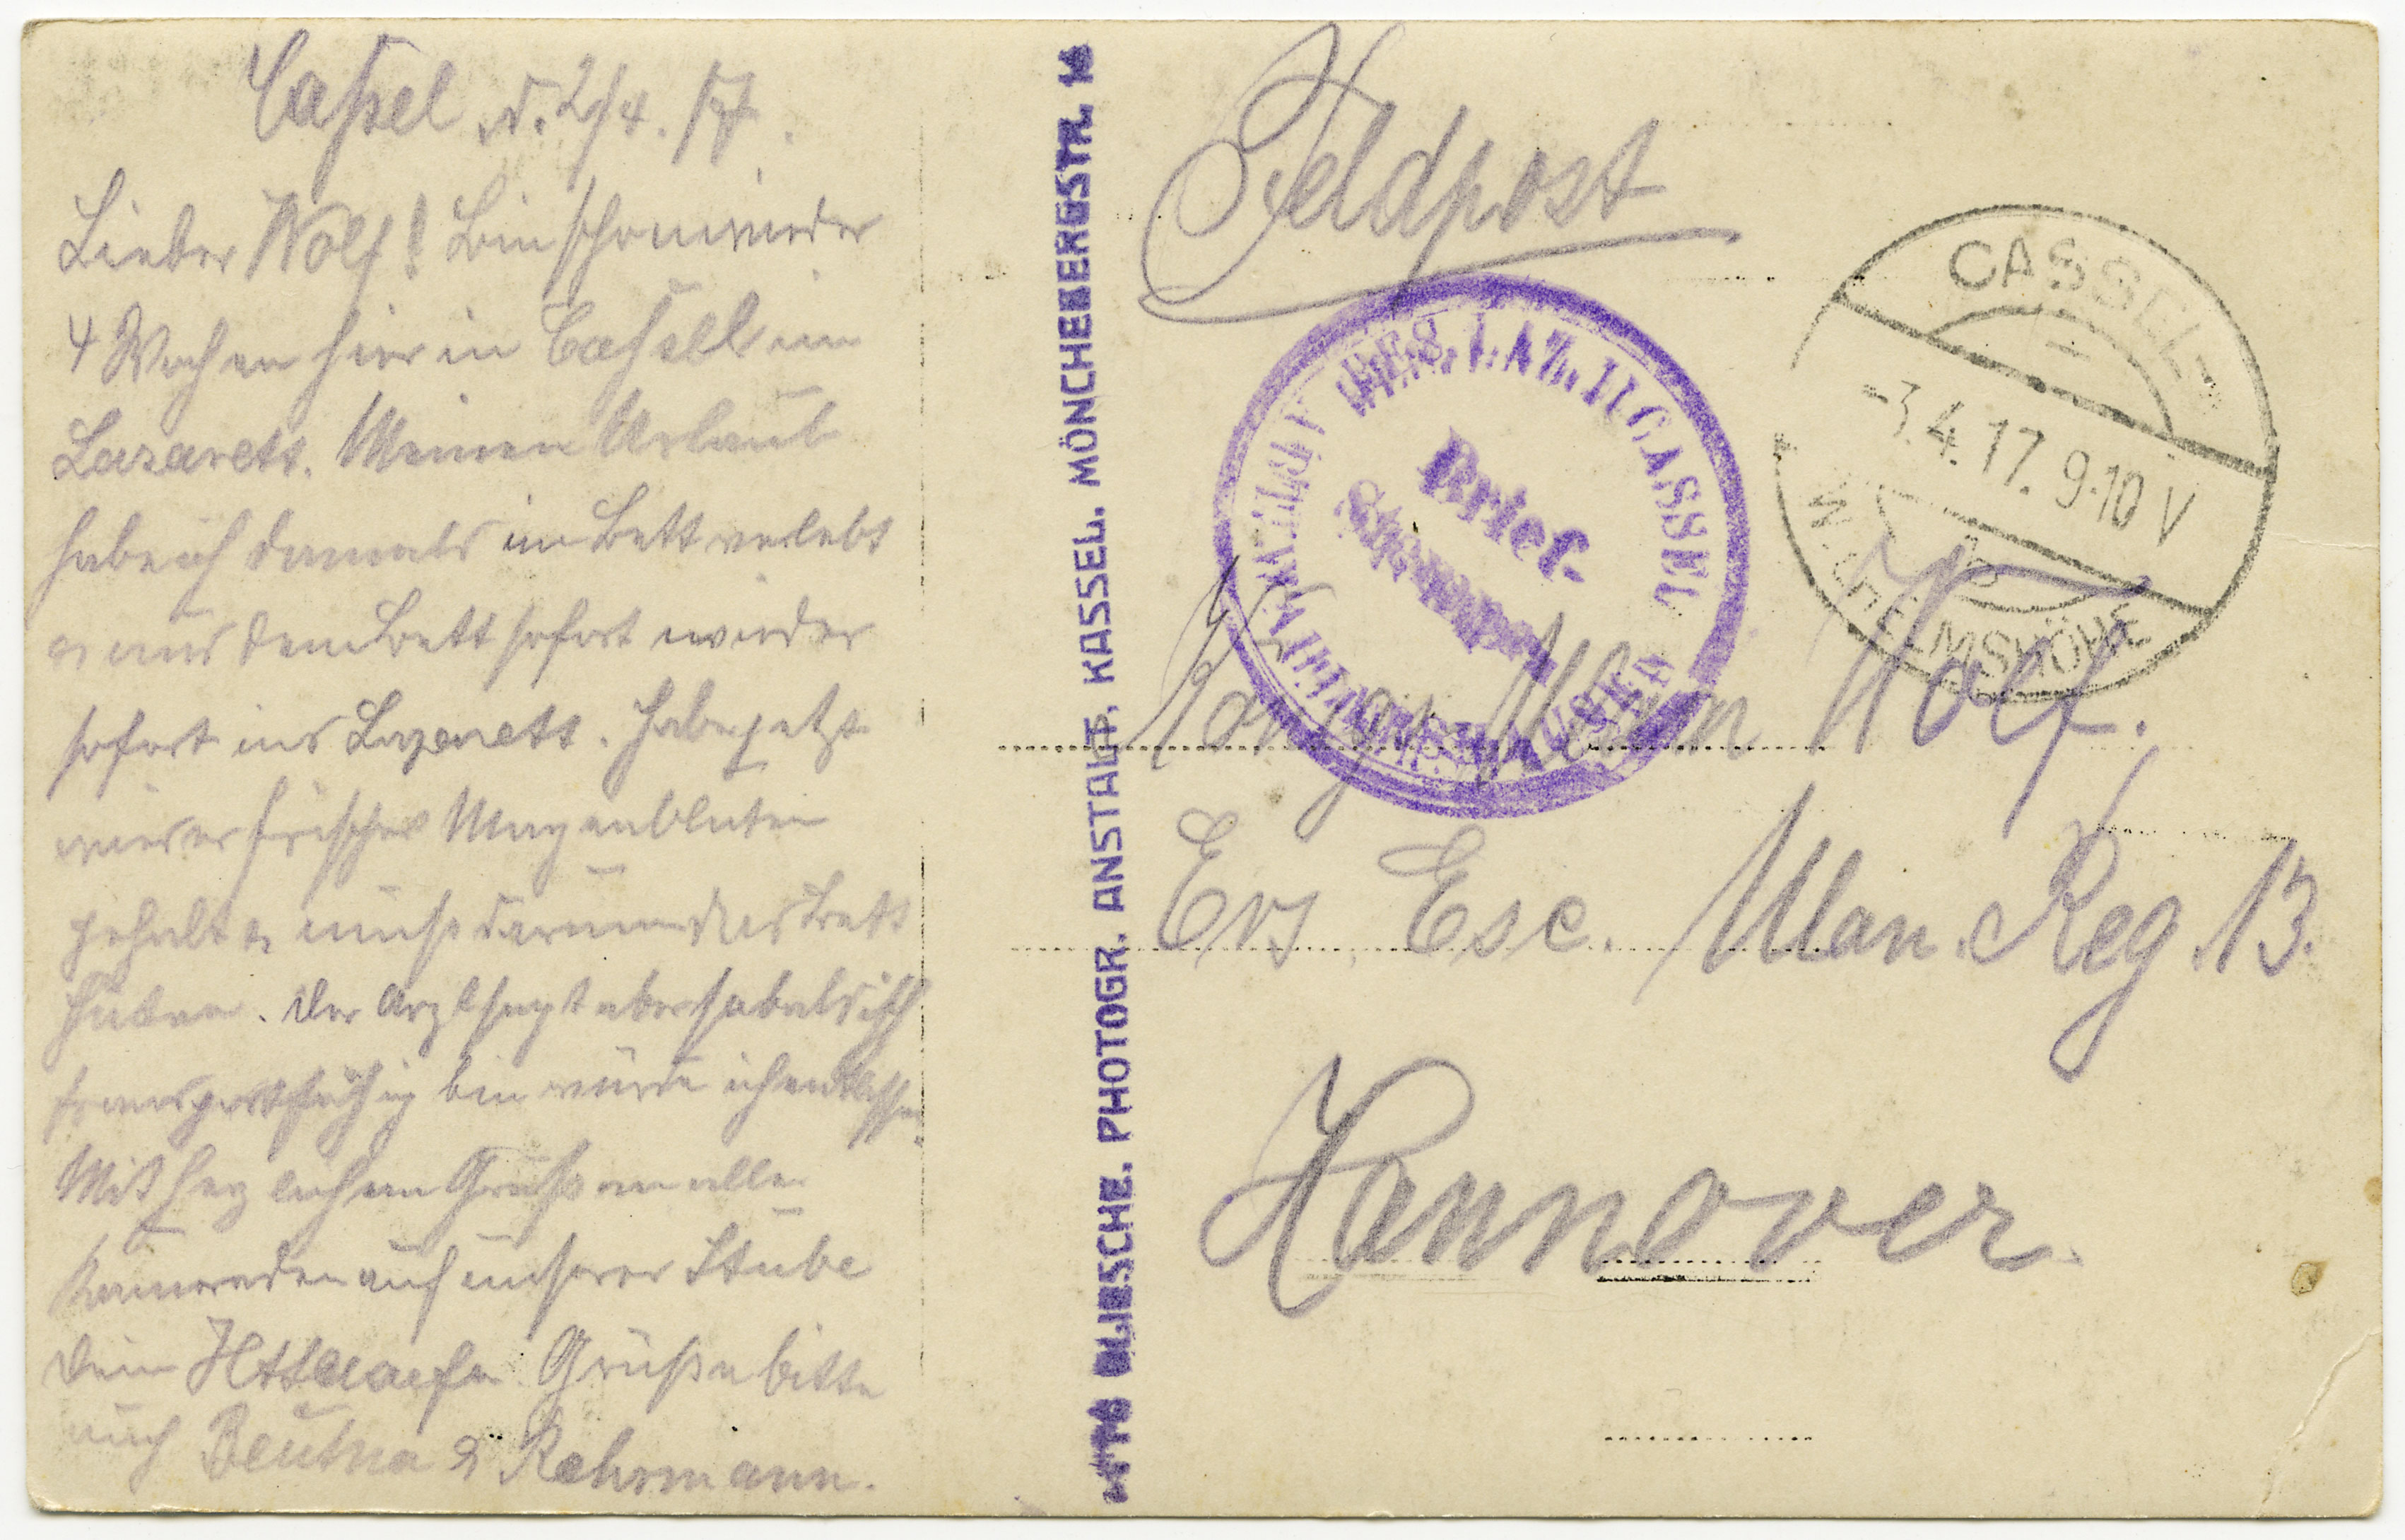 Cassel d. 2/4. 17.
Lieber Wolf! Bin schon wieder
4 Wochen hier in Cassel im
Lazarett. Meinen Urlaub
habe ich damals im Bett verlebt
u aus dem Bett sofort wieder
sofort ins Lazarett. Habe jetzt
wieder frisches Magenbluten
gehabt u muß darum das Bett
hüten. Der Arzt sagt aber sobald ich
transportfähig bin würde ich entlassen
Mit herzlichem Gruß an alle
Kameraden auf unserer Stube
Dein Grüße bitte
auch & Rehrmann.
OTTO BLIESCHE. PHOTOGR. ANSTALT, KASSEL, MÖNCHEBERGSTR. 14
Feldpost
CASSEL-
-3.4.17. 9-10 V
WILHELMSHÖHE
RES. LAZ. II CASSEL
Brief-
Stempel
Wolf.
Ers. Esc. Ulan. Reg. 13.
Hannover.